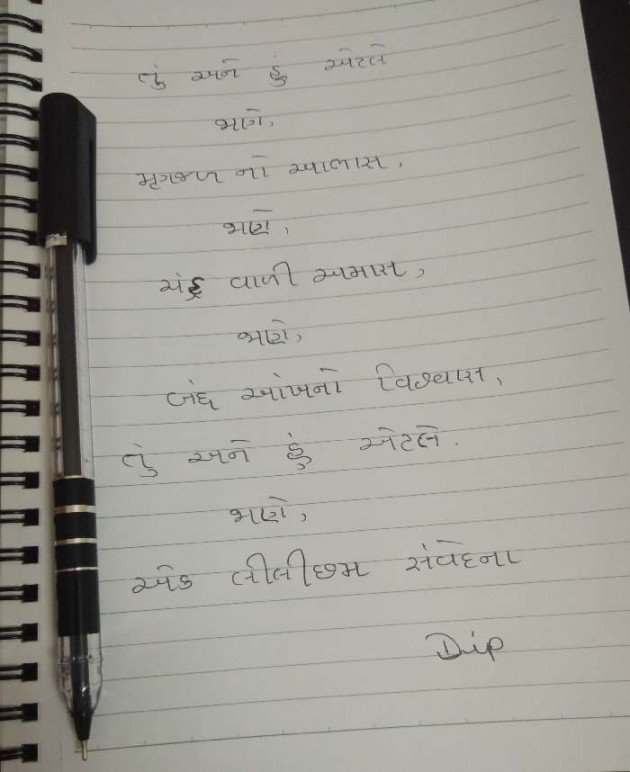 તું અને હું એટલે
જાણે,
મૃગજળ નો આભાસ,
જાણે,
ચંદ્ર વાળી અમાસ,
જાણે,
બંધ આંખનો વિશ્વાસ,
તું અને હું એટલે.
જાણે,
એક લીલીછમ સંવેદના
Dip